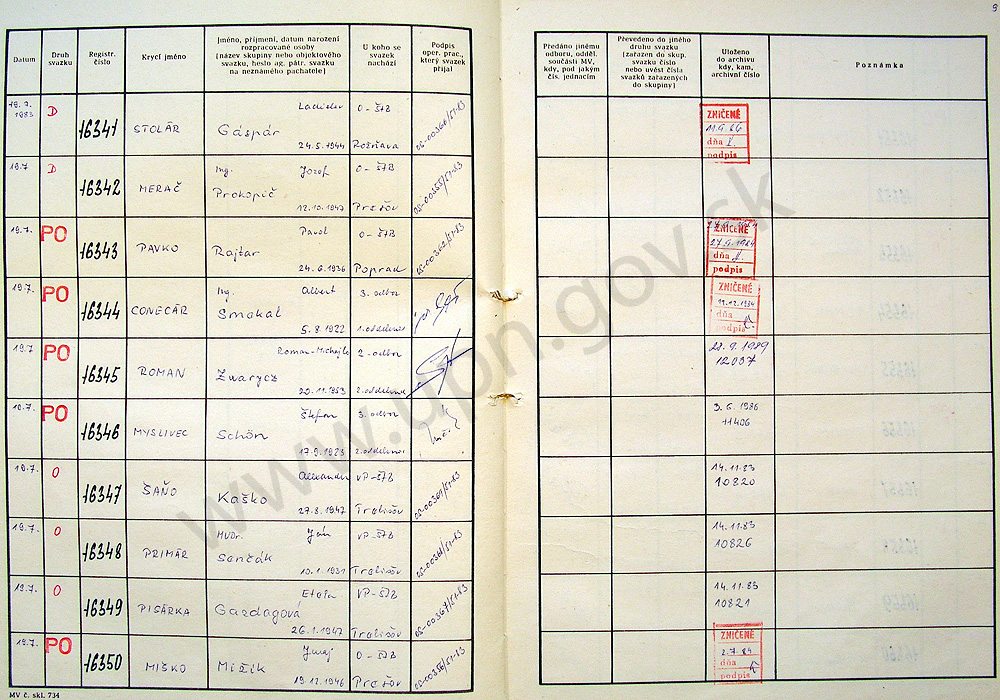 9
Datum
Druh
svazku
Registr.
číslo
Krycí jméno
Jméno, příjmení, datum narození
rozpracované osoby
(název skupiny nebo objektového
svazku, heslo ag. pátr. svazku
na neznámého pachatele)
U koho se
svazek
nachází
Podpis
oper. prac.,
který svazek
přijal
Předáno jinému
odboru, odděl.
součásti MV,
kdy, pod jakým
čís. jednacím
Převedeno do jiného
druhu svazku
(zařazen do skup.
svazku číslo
nebo uvést čísla
svazků zařazených
do skupiny)
Uloženo
do archivu
kdy, kam,
archivní číslo
Poznámka
19.7.
1983
D
16341
STOLÁR
Ladislav
Gáspár
24.5.1944
O-ŠtB
Rožňava
ZNIČENÉ
dňa
podpis
19.7.
D
16342
MERAČ
Ing. Jozef
Prokopič
12.10.1947
O-ŠtB
Prešov
19.7.
PO
16343
PAVKO
Pavol
Rajtar
24.6.1936
O-ŠtB
Poprad
ZNIČENÉ
27.6.1984
dňa
podpis
19.7.
PO
16344
CONECÁR
Ing. Albert
Smokal
5.8.1922
3. odbor
1. oddelenie
ZNIČENÉ
dňa
podpis
19.7
PO
16345
ROMAN
Roman-Michajlo
Zwarycz
20.11.1953
2. odbor
2. oddelenie
28.9.1989
12037
19.7.
PO
16346
MYSLIVEC
Štefan
Schön
17.9.1923
3. odbor
2. oddelenie
3.6.1986
11406
19.7.
O
16347
ŠAŇO
Alexander
Kaško
27.8.1947
VP-ŠtB
Trebišov
14.11.83
10820
19.7.
O
16348
PRIMÁR
MUDr. Ján
Senčák
10.1.1931
VP-ŠtB
Trebišov
14.11.83
10826
19.7.
O
16349
PISÁRKA
Etela
Gazdagová
26.1.1947
VP-ŠtB
Trebišov
14.11.83
10821
19.7.
PO
16350
MIŠKO
Juraj
Mižik
19.12.1946
O-ŠtB
Prešov
ZNIČENÉ
2.7.84
dňa
podpis
MV č. skl. 734
www.upn.gov.sk